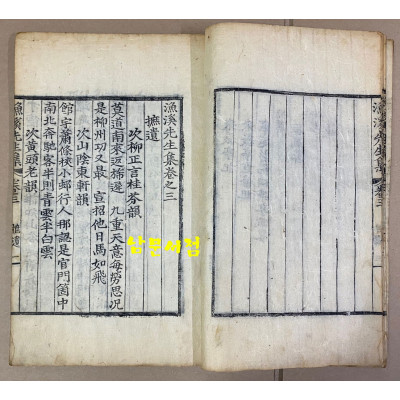 漁溪先生集卷之三
摭遺
次柳正言桂芬韻
莫道南來返棹遲 九重天意每勞思況
是柳州功又最 宣招他日馬如飛
次山陰東軒韻
館宇蕭條狹小邮行人那認是官門箇中
南北奔馳客半則青雲半白雲
次黃頭老韻
漁溪先生集 卷三 摭遺 一
漁溪先生集 卷三
삼문서점